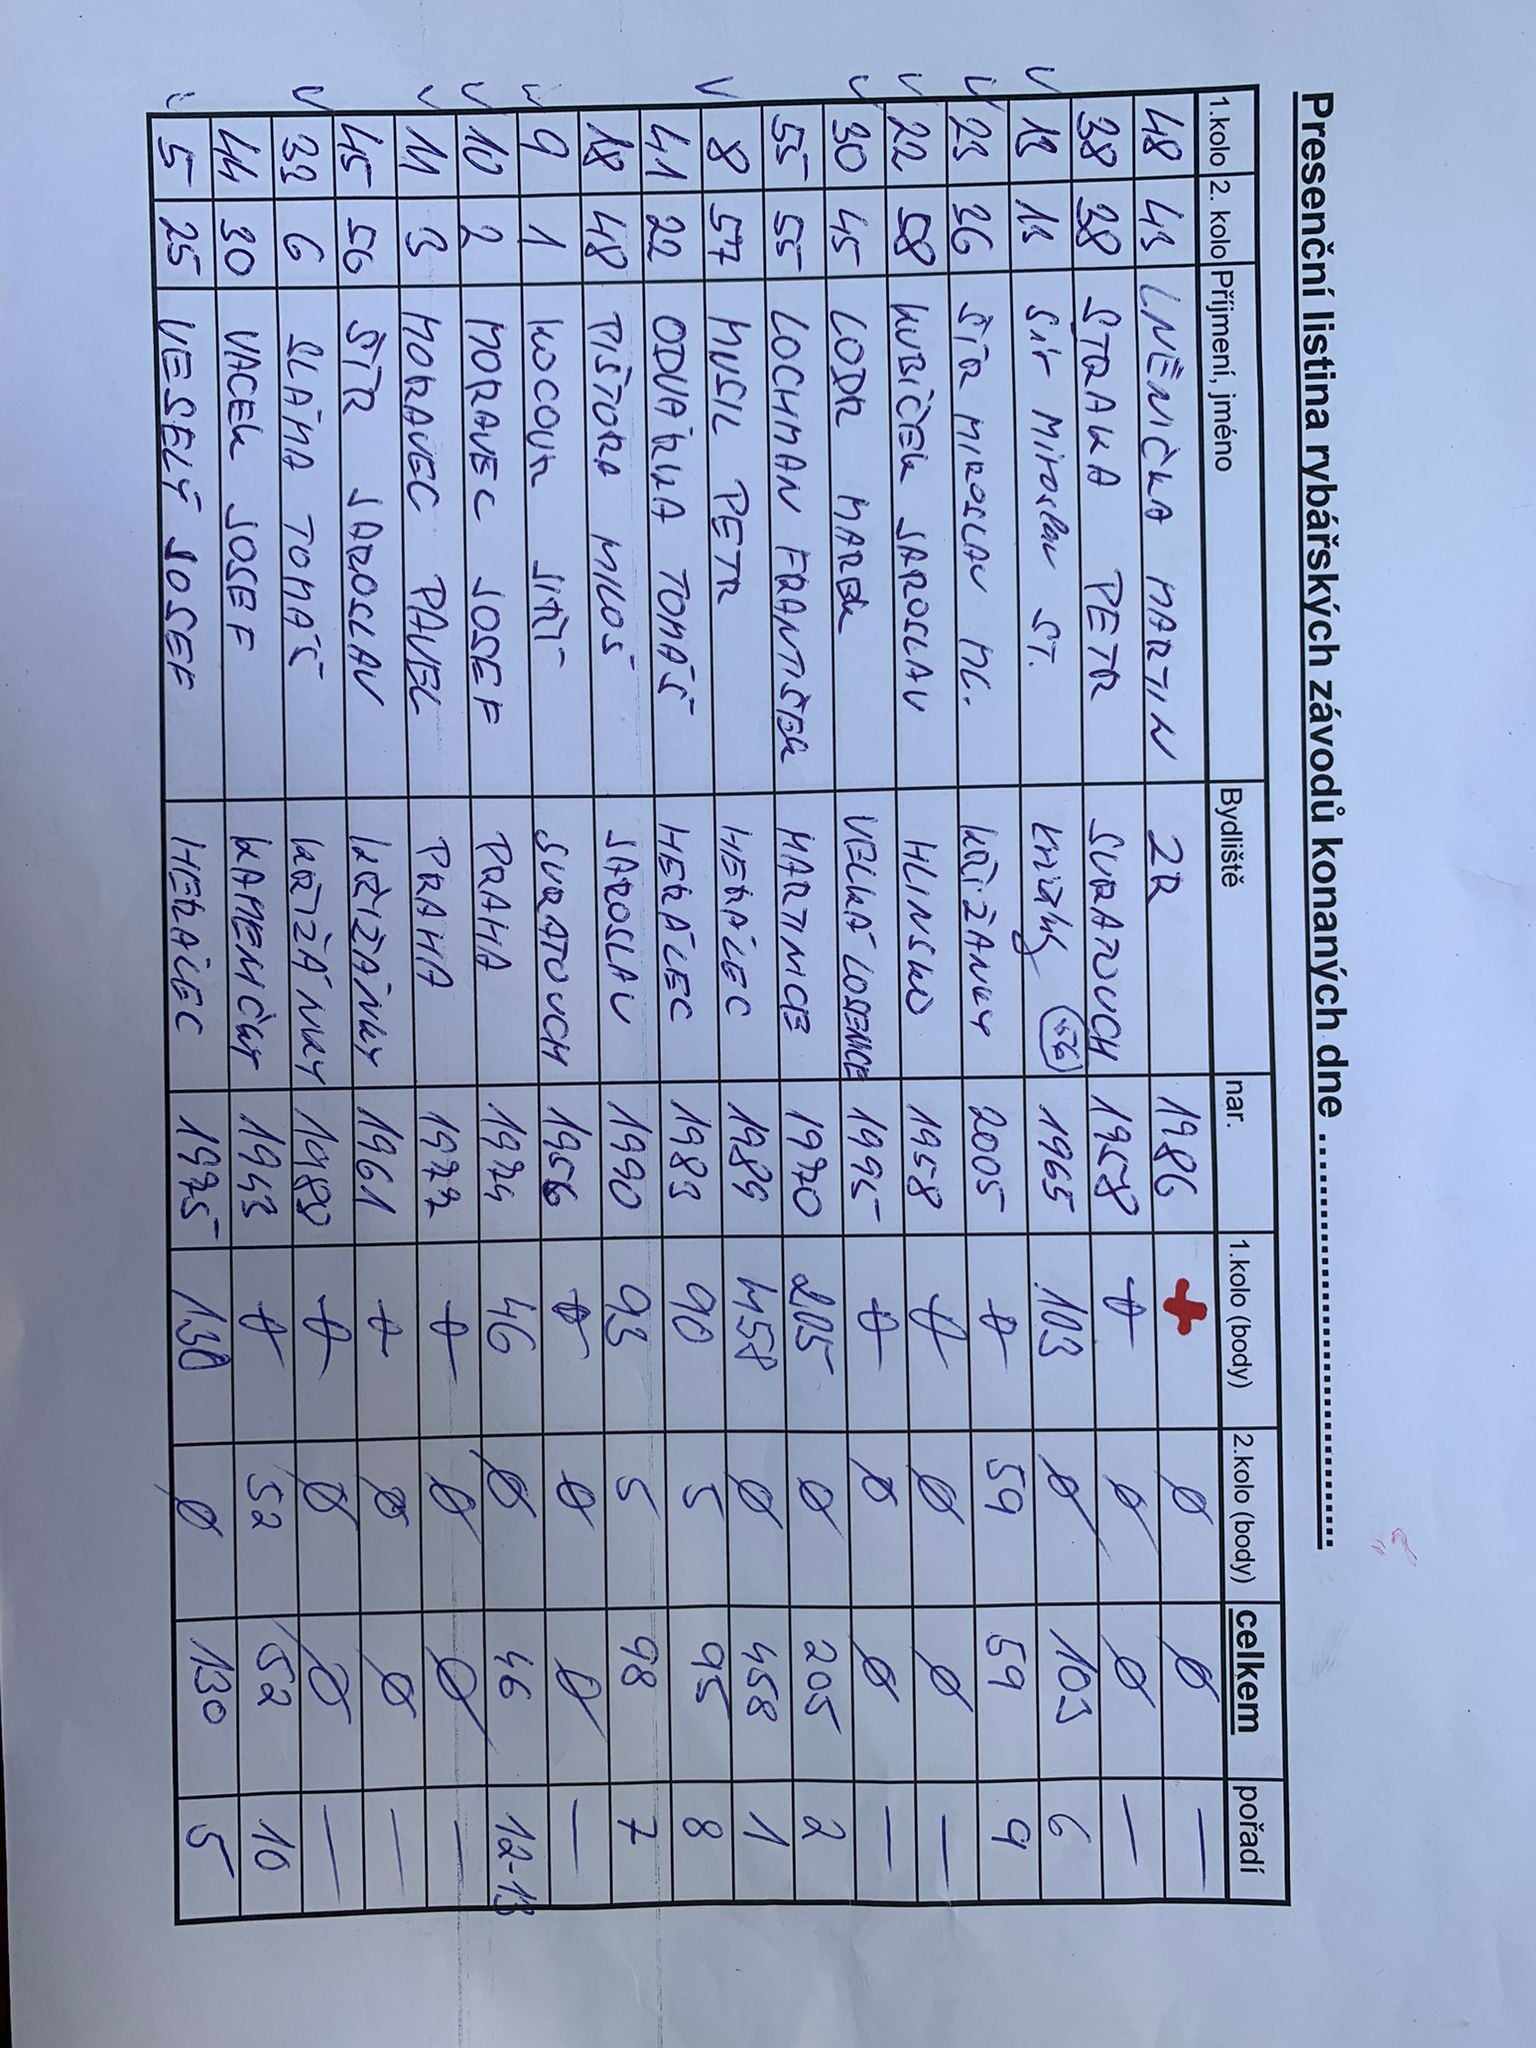 Presenční listina rybářských závodů konaných dne ............................................
1.kolo 2. kolo Příjmení, jméno Bydliště nar. 1.kolo (body) 2.kolo (body) celkem pořadí
48 43 LNĚNIČKA MARTIN ZR 1986 + Ø Ø —
38 38 STRAKA PETR SVRATOUCH 1958 Ø Ø Ø —
13 13 Šír Miroslav ST. 1965 103 Ø 103 6
23 36 ŠÍR MIROSLAV ML. KŘIŽÁNKY 2005 Ø 59 59 9
22 58 KUBIČEK JAROSLAV HLINSKO 1958 Ø Ø Ø —
30 45 LODR MAREK VELKÁ LOSENICE 1995 Ø Ø Ø —
55 55 LOCHMAN FRANTIŠEK MARTINICE 1970 205 Ø 205 2
8 57 MUSIL PETR HERÁLEC 1989 458 Ø 458 1
41 22 ODVÁRKA TOMÁŠ HERÁLEC 1983 90 5 95 8
18 48 PIŠTORA MILOŠ JAROSLAV 1990 93 5 98 7
9 1 KOCOUR JIŘÍ SVRATOUCH 1956 Ø Ø Ø —
10 2 MORAVEC JOSEF PRAHA 1974 46 Ø 46 12-13
11 3 MORAVEC PAVEL PRAHA 1977 Ø Ø Ø —
45 56 ŠÍR JAROSLAV KŘIŽÁNKY 1961 Ø Ø Ø —
33 6 SLÁMA TOMÁŠ KŘIŽÁNKY 1980 Ø Ø Ø —
44 30 VACEK JOSEF KAMENIČKY 1943 Ø 52 52 10
5 25 VESELÝ JOSEF HERÁLEC 1975 130 Ø 130 5